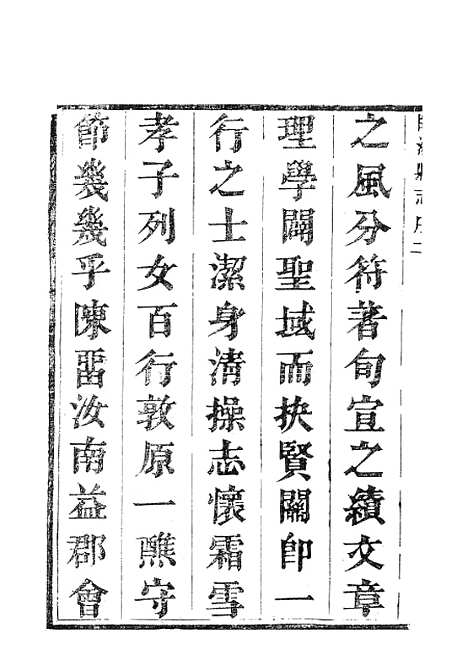 之風分符著句宣之績文章
理學闢聖域而抉賢關即一
行之士潔身清操志懷霜雪
孝子列女百行敦原一醮守
節幾幾乎陳畱汝南益郡會